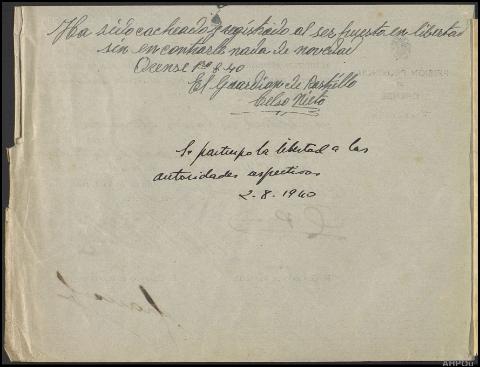 Ha sido cacheado y registrado al ser puesto en libertad
sin encontrarle nada de novedad
Orense 1º 8 40
El Guardian de Rastrillo
Celso Nieto
Se participo la libertad a las
autoridades respectivas
2-8-1940
AHPOu